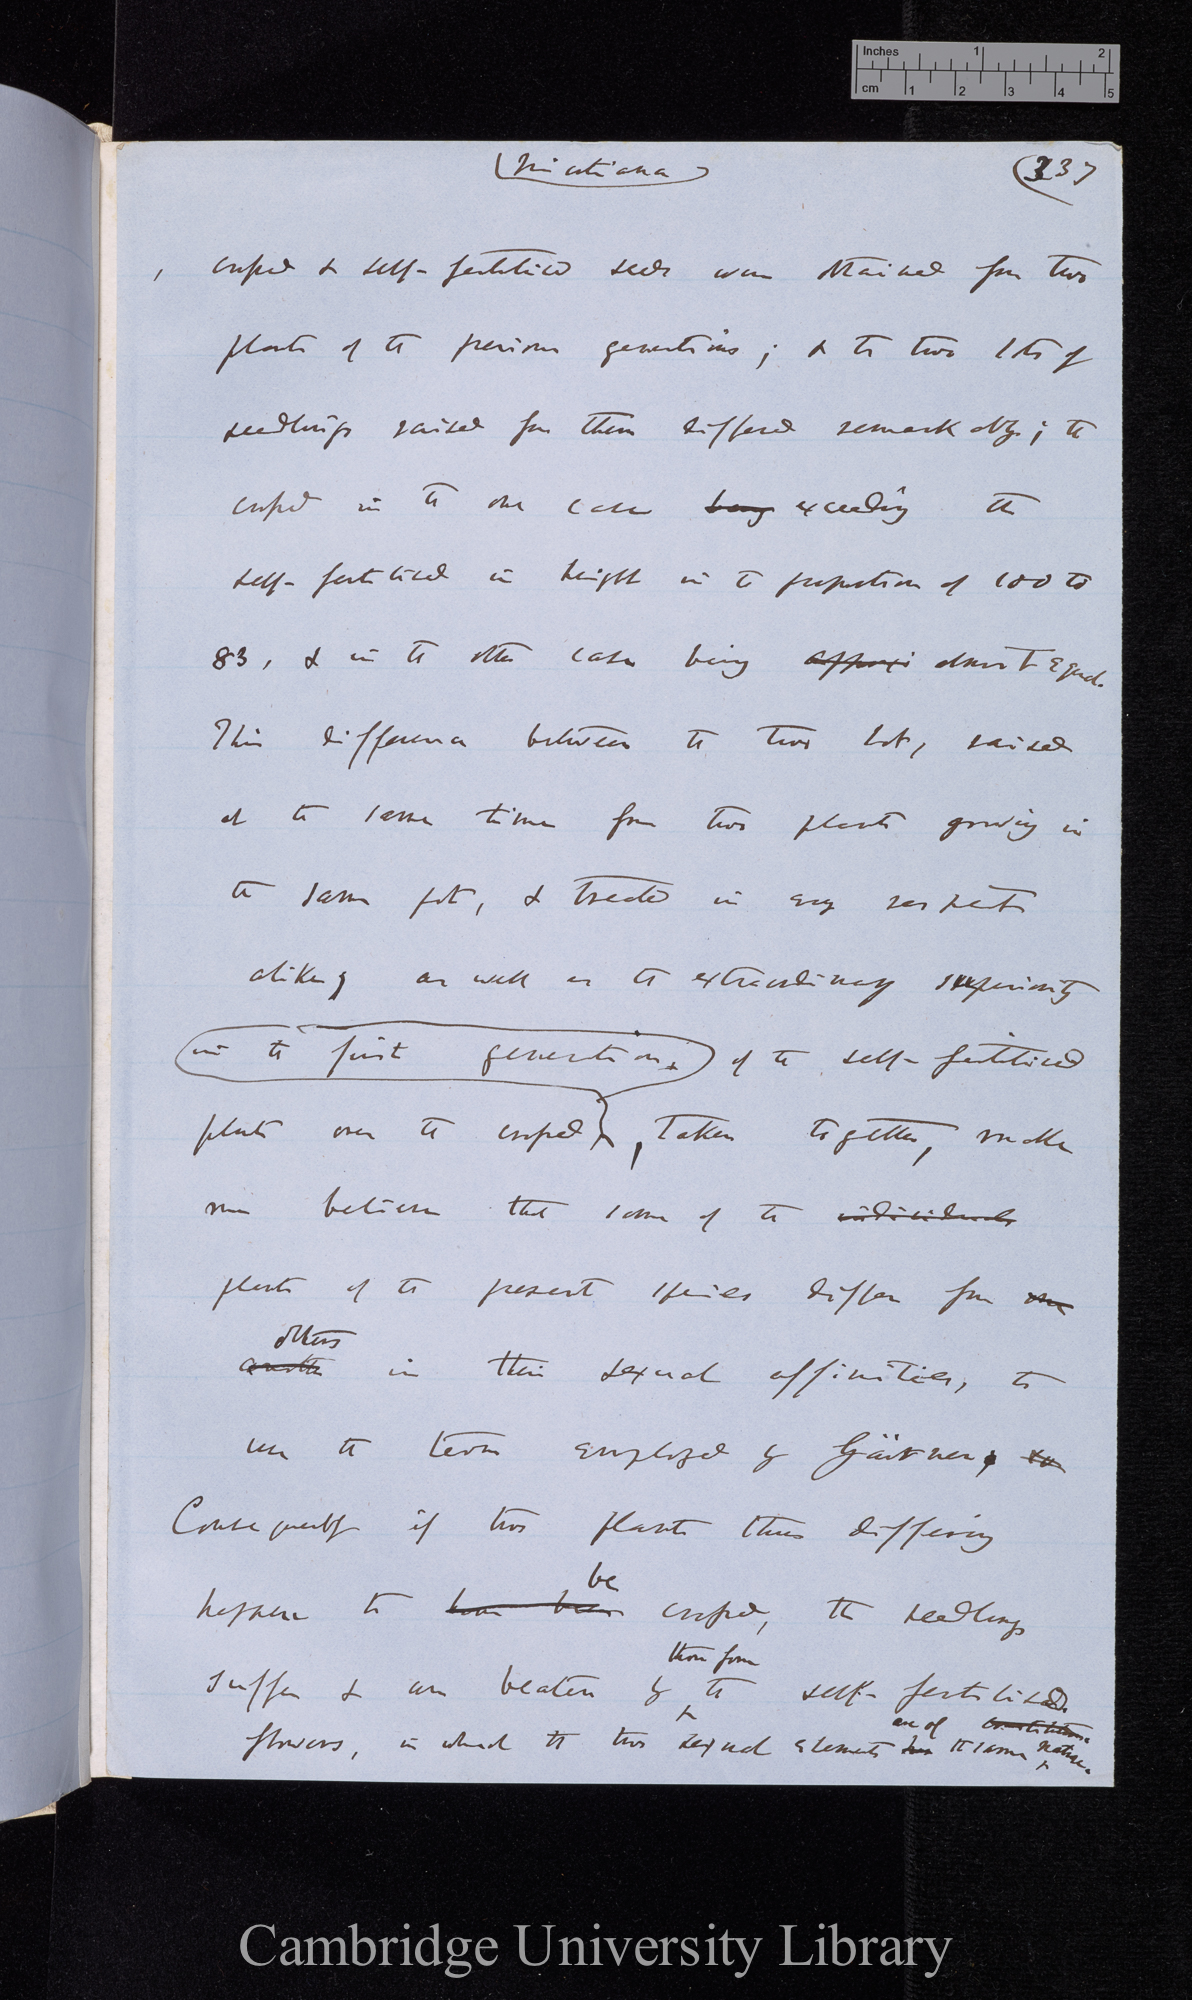 Inches 1 2
cm 1 2 3 4 5
(Nicotiana)
(337
, crossed & self-fertilised seeds were obtained from two
plants of the previous generations; & the two lots of
seedlings raised from them differed remarkably; the
crossed in the one case being exceeding the
self-fertilised in height in the proportion of 100 to
83, & in the other case being approxi almost equal.
This difference between the two lots, raised
at the same time from two plants growing in
the same pot, & treated in every respect
alike, as well as the extraordinary superiority
in the first generation, of the self-fertilised
plants over the crossed, taken together, make
me believe that some of the individuals
plants of the present species differ from one
others
another in their sexual affinities, to
use the term employed by Gärtner. so
Consequently if two plants thus differing
be
happen to have been crossed, the seedlings
those from
suffer & are beaten by the self-fertilised
are of constitution.
flowers, in which the two sexual elements has the same nature.
Cambridge University Library